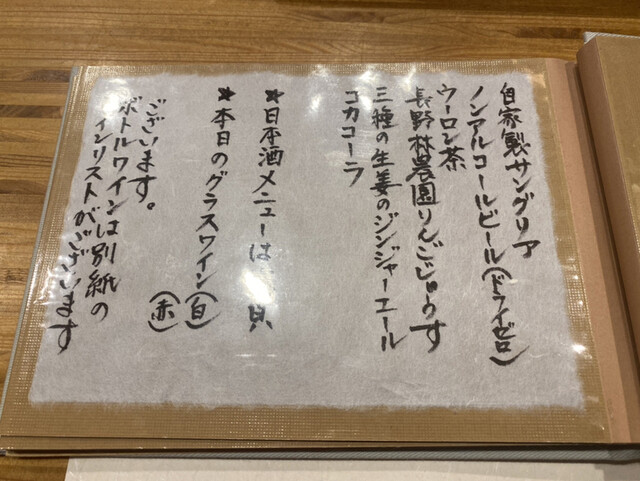 自家製サングリア
ノンアルコールビール(ドライゼロ)
ウーロン茶
長野林農園りんごじゅうす
三種の生姜のジンジャーエール
コカコーラ
★日本酒メニューは
★本日のグラスワイン(白)
(赤)
ございます。
ボトルワインは別紙の
ワインリストがございます